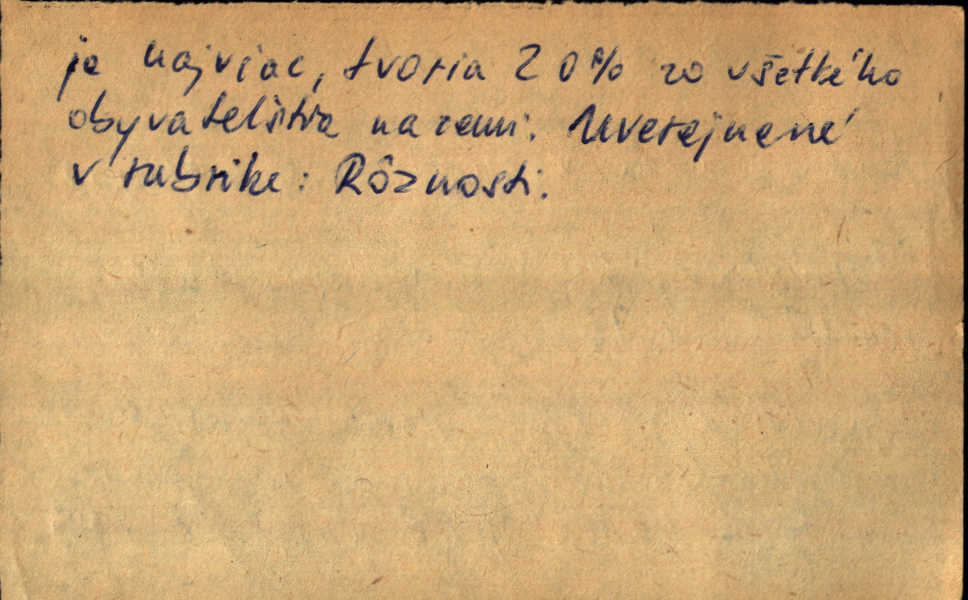 je najviac, tvoria 20% zo všetkého
obyvatelstva na zemi. Uverejnené
v rubrike: Rôznosti.